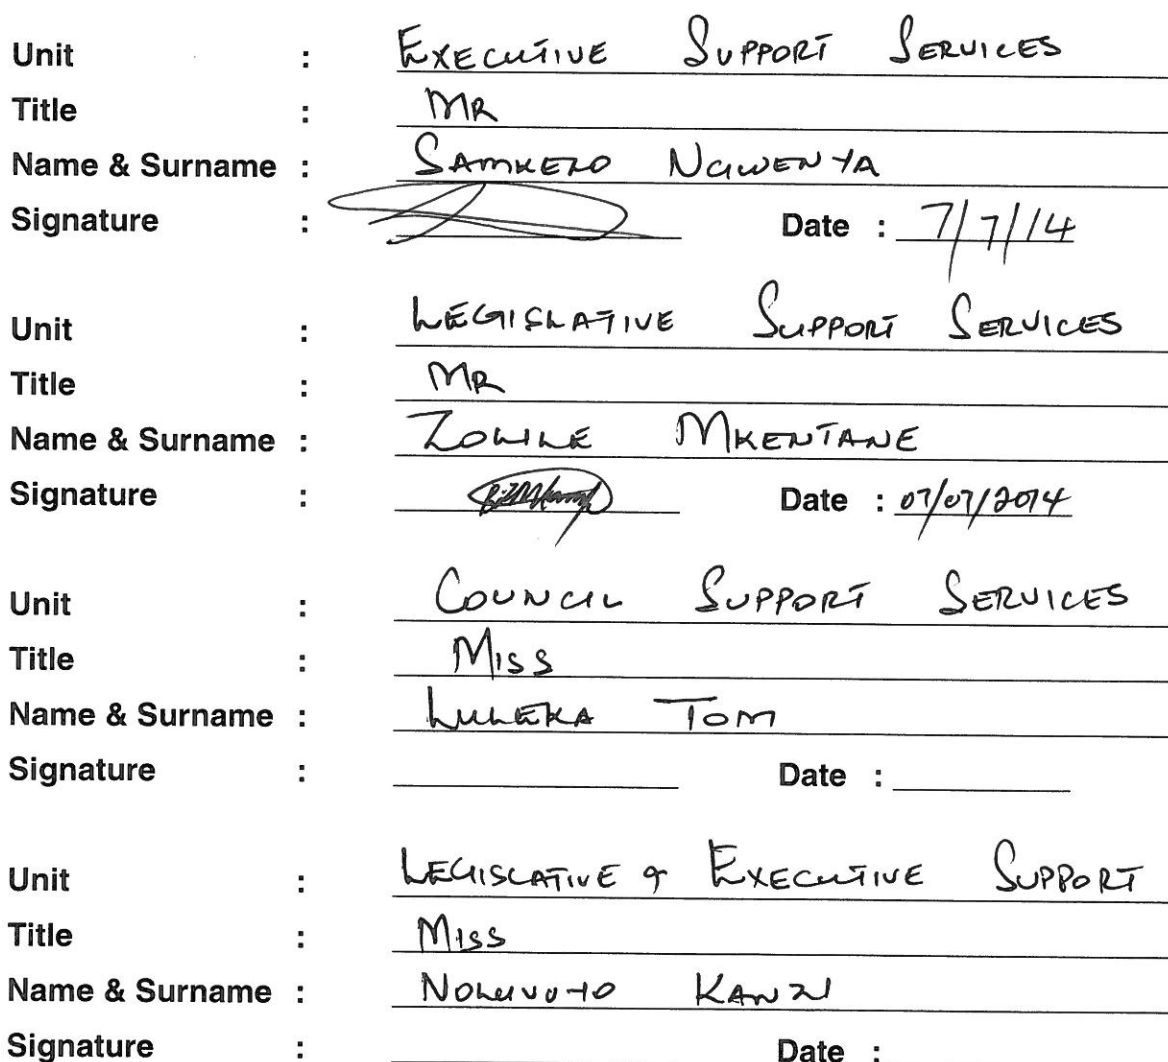 Unit : EXECUTIVE SUPPORT SERVICES
Title : MR
Name & Surname : SAMKELO NGWENYA
Signature : Date : 7/7/14
Unit : LEGISLATIVE SUPPORT SERVICES
Title : MR
Name & Surname : ZOLILE MKENTANE
Signature : Date : 07/07/2014
Unit : COUNCIL SUPPORT SERVICES
Title : MISS
Name & Surname : LULEKA TOM
Signature : Date :
Unit : LEGISLATIVE & EXECUTIVE SUPPORT
Title : MISS
Name & Surname : NOLUVUYO KANZI
Signature : Date :